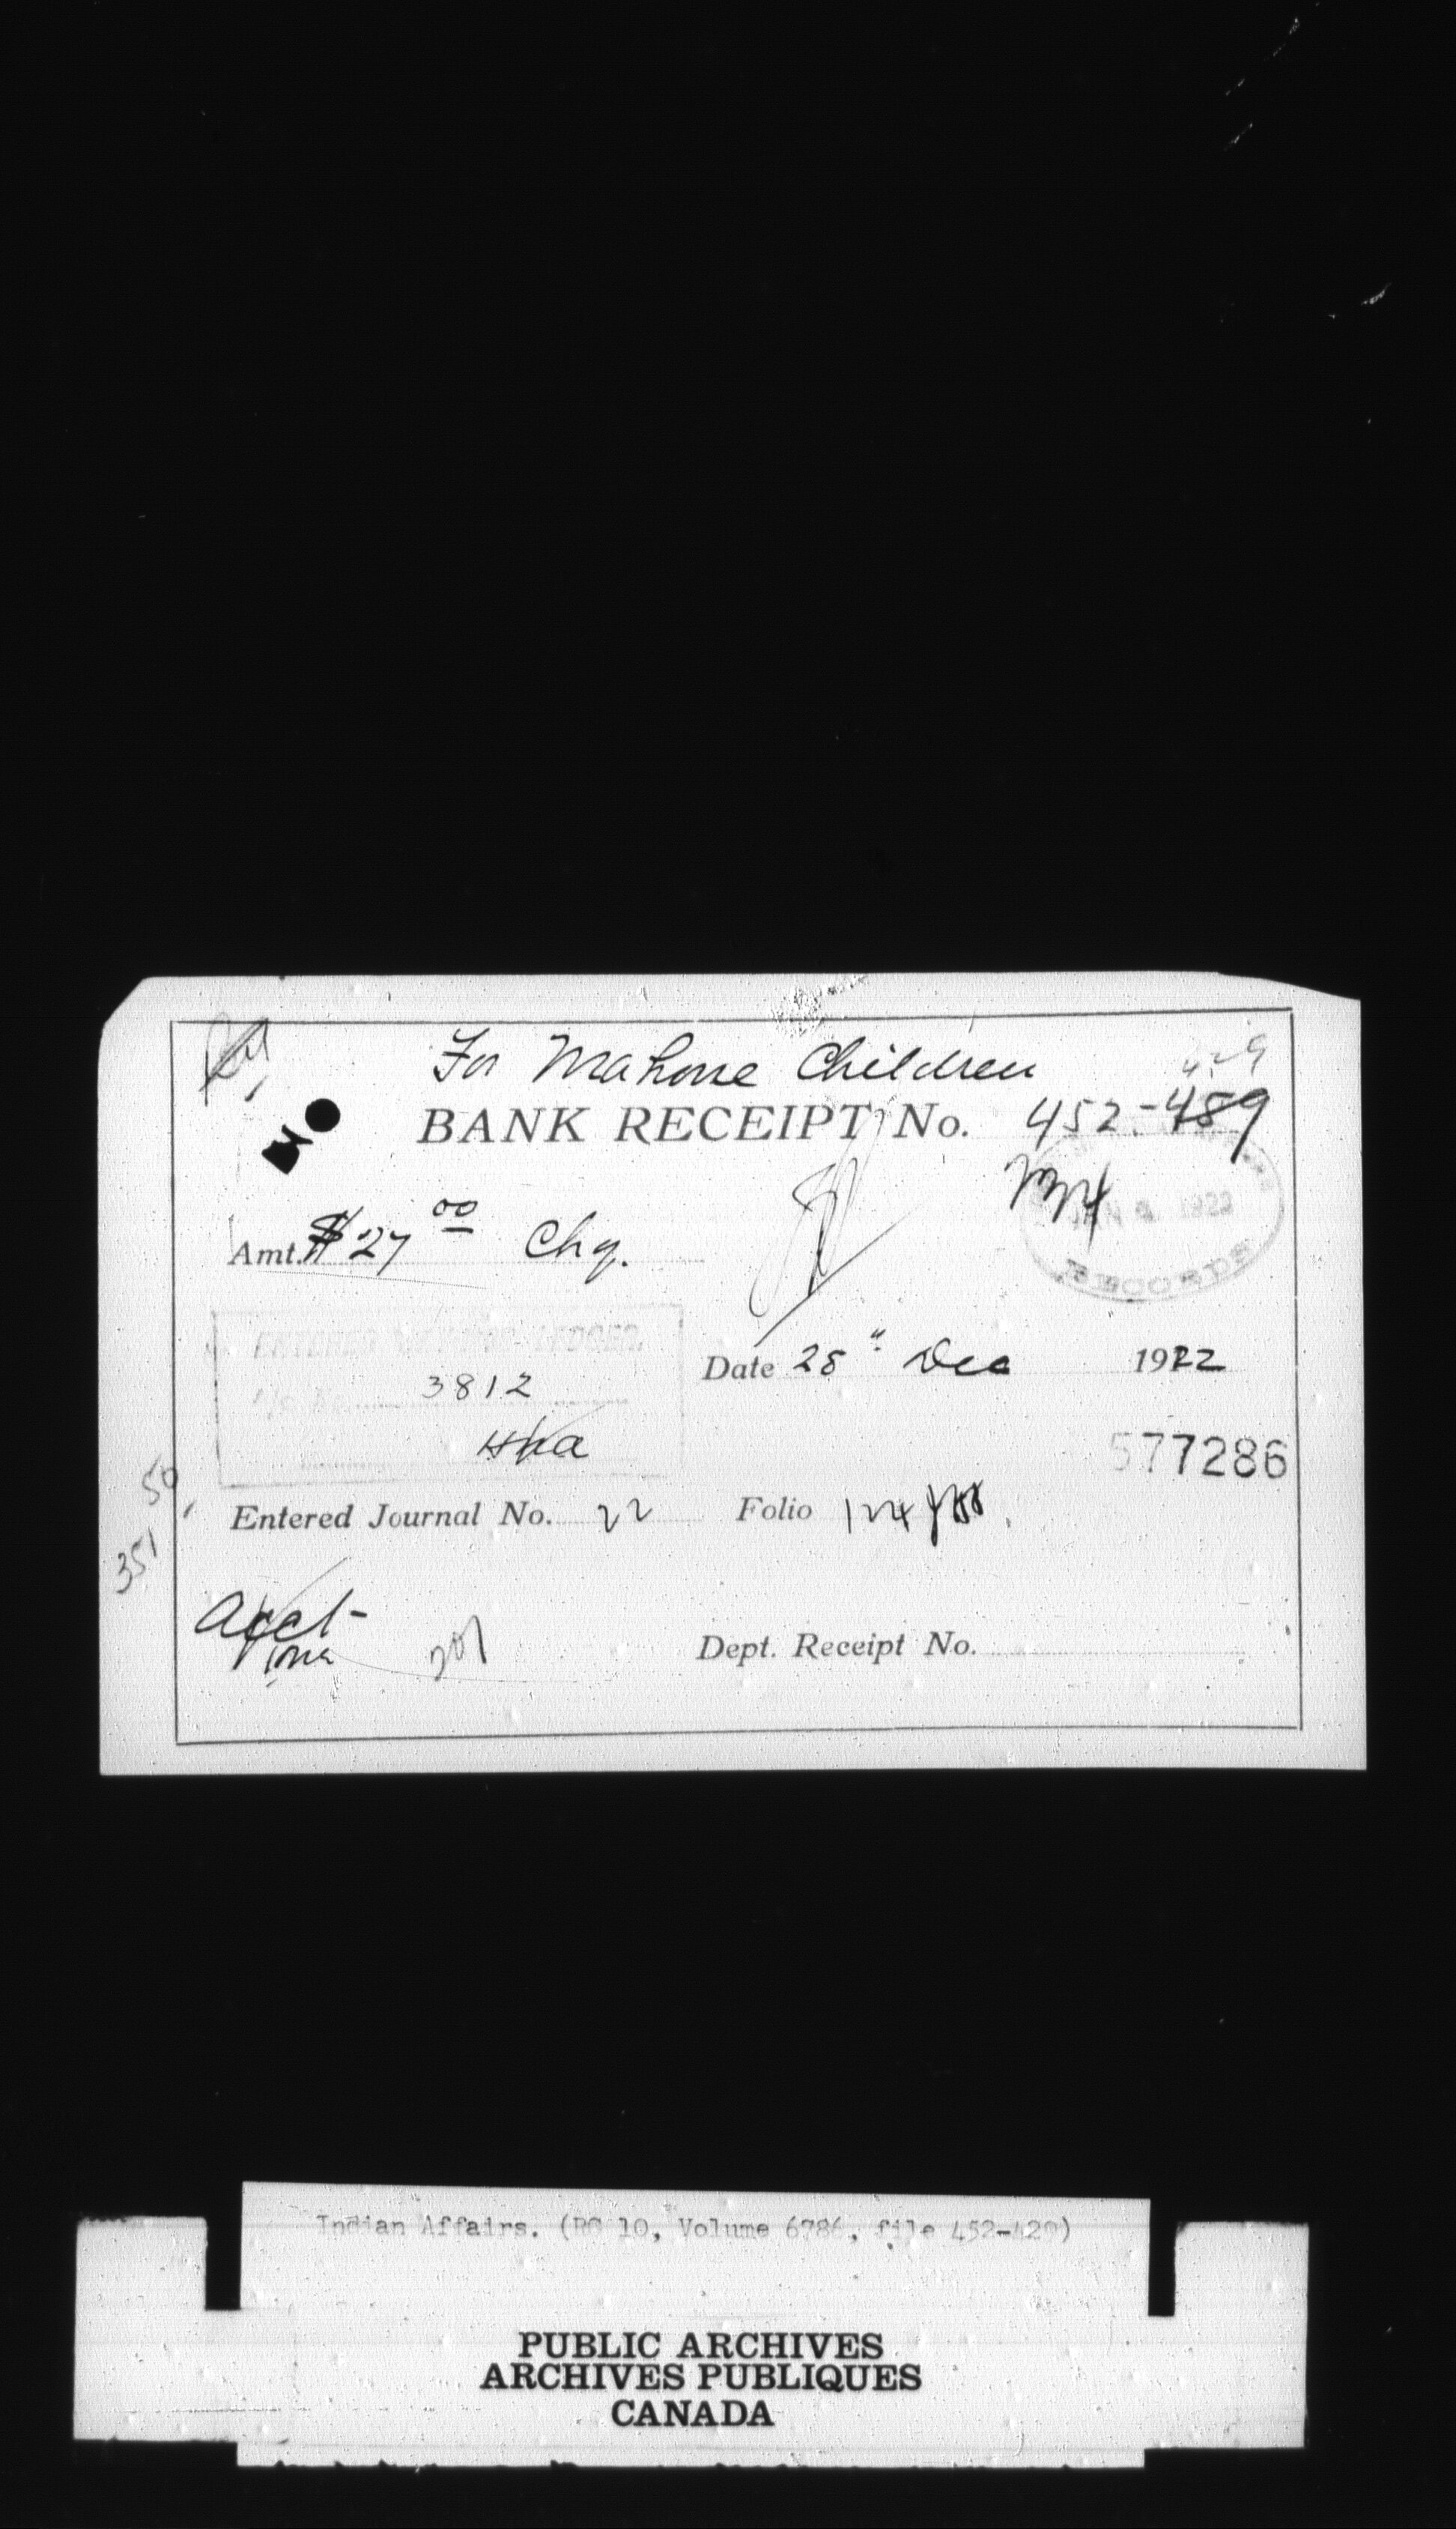 For Mahone Children
429
BANK RECEIPT No. 452-489
Amt. $27 00 Chq.
JAN 1923
RECORDS
ENTERED LEDGER
3812
Date 28" Dec 1922
577286
50
Entered Journal No. 22 Folio 124
351
Acct-
201
Dept. Receipt No.
Indian Affairs. (RG 10, Volume 6786, file 452-429)
PUBLIC ARCHIVES
ARCHIVES PUBLIQUES
CANADA